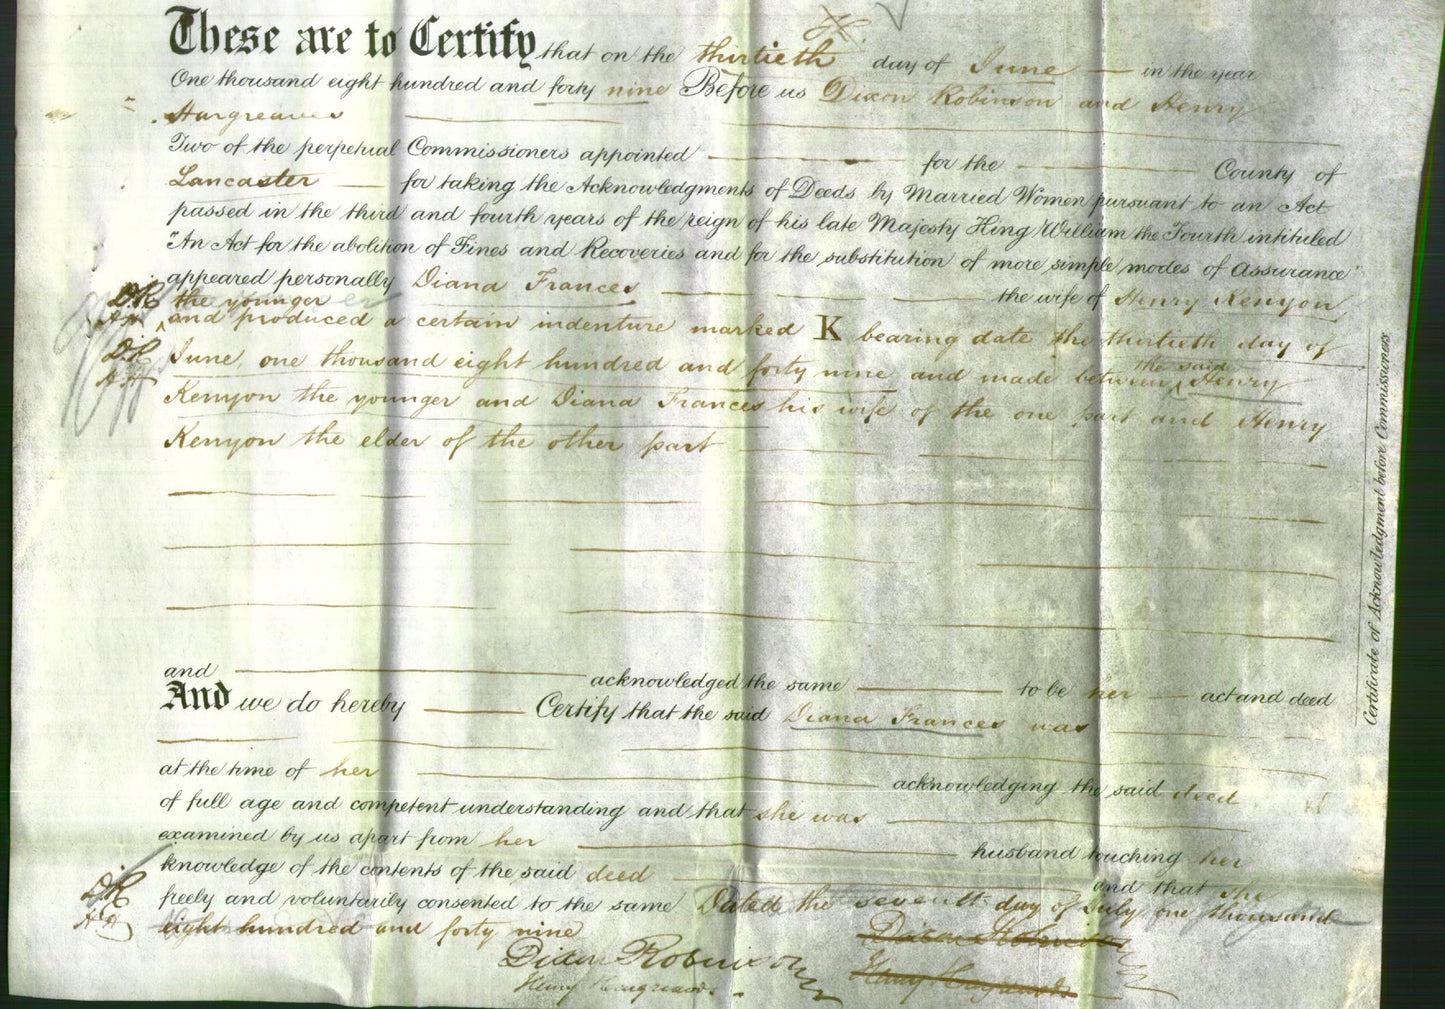 These are to Certify that on the thirtieth day of June in the year
One thousand eight hundred and forty nine Before us Dixon Robinson and Henry
Hargreaves
Two of the perpetual Commissioners appointed for the County of
Lancaster for taking the Acknowledgments of Deeds by Married Women pursuant to an Act
passed in the third and fourth years of the reign of his late Majesty King William the Fourth intituled
"An Act for the abolition of Fines and Recoveries and for the substitution of more simple modes of Assurance"
appeared personally Diana Frances the wife of Henry Kenyon
D.R. the younger
H.H. and produced a certain indenture marked K bearing date the thirtieth day of
D.R. June, one thousand eight hundred and forty nine and made between the said Henry
H.H.
Kenyon the younger and Diana Frances his wife of the one part and Henry
Kenyon the elder of the other part
and acknowledged the same to be her act and deed
And we do hereby Certify that the said Diana Frances was
at the time of her acknowledging the said deed
of full age and competent understanding and that she was
examined by us apart from her husband touching her
knowledge of the contents of the said deed and that she
D.R. freely and voluntarily consented to the same Dated the seventh day of July one thousand
H.H. eight hundred and forty nine
Dixon Robinson
Henry Hargreaves
Dixon Robinson
Henry Hargreaves
Certificate of Acknowledgment before Commissioners